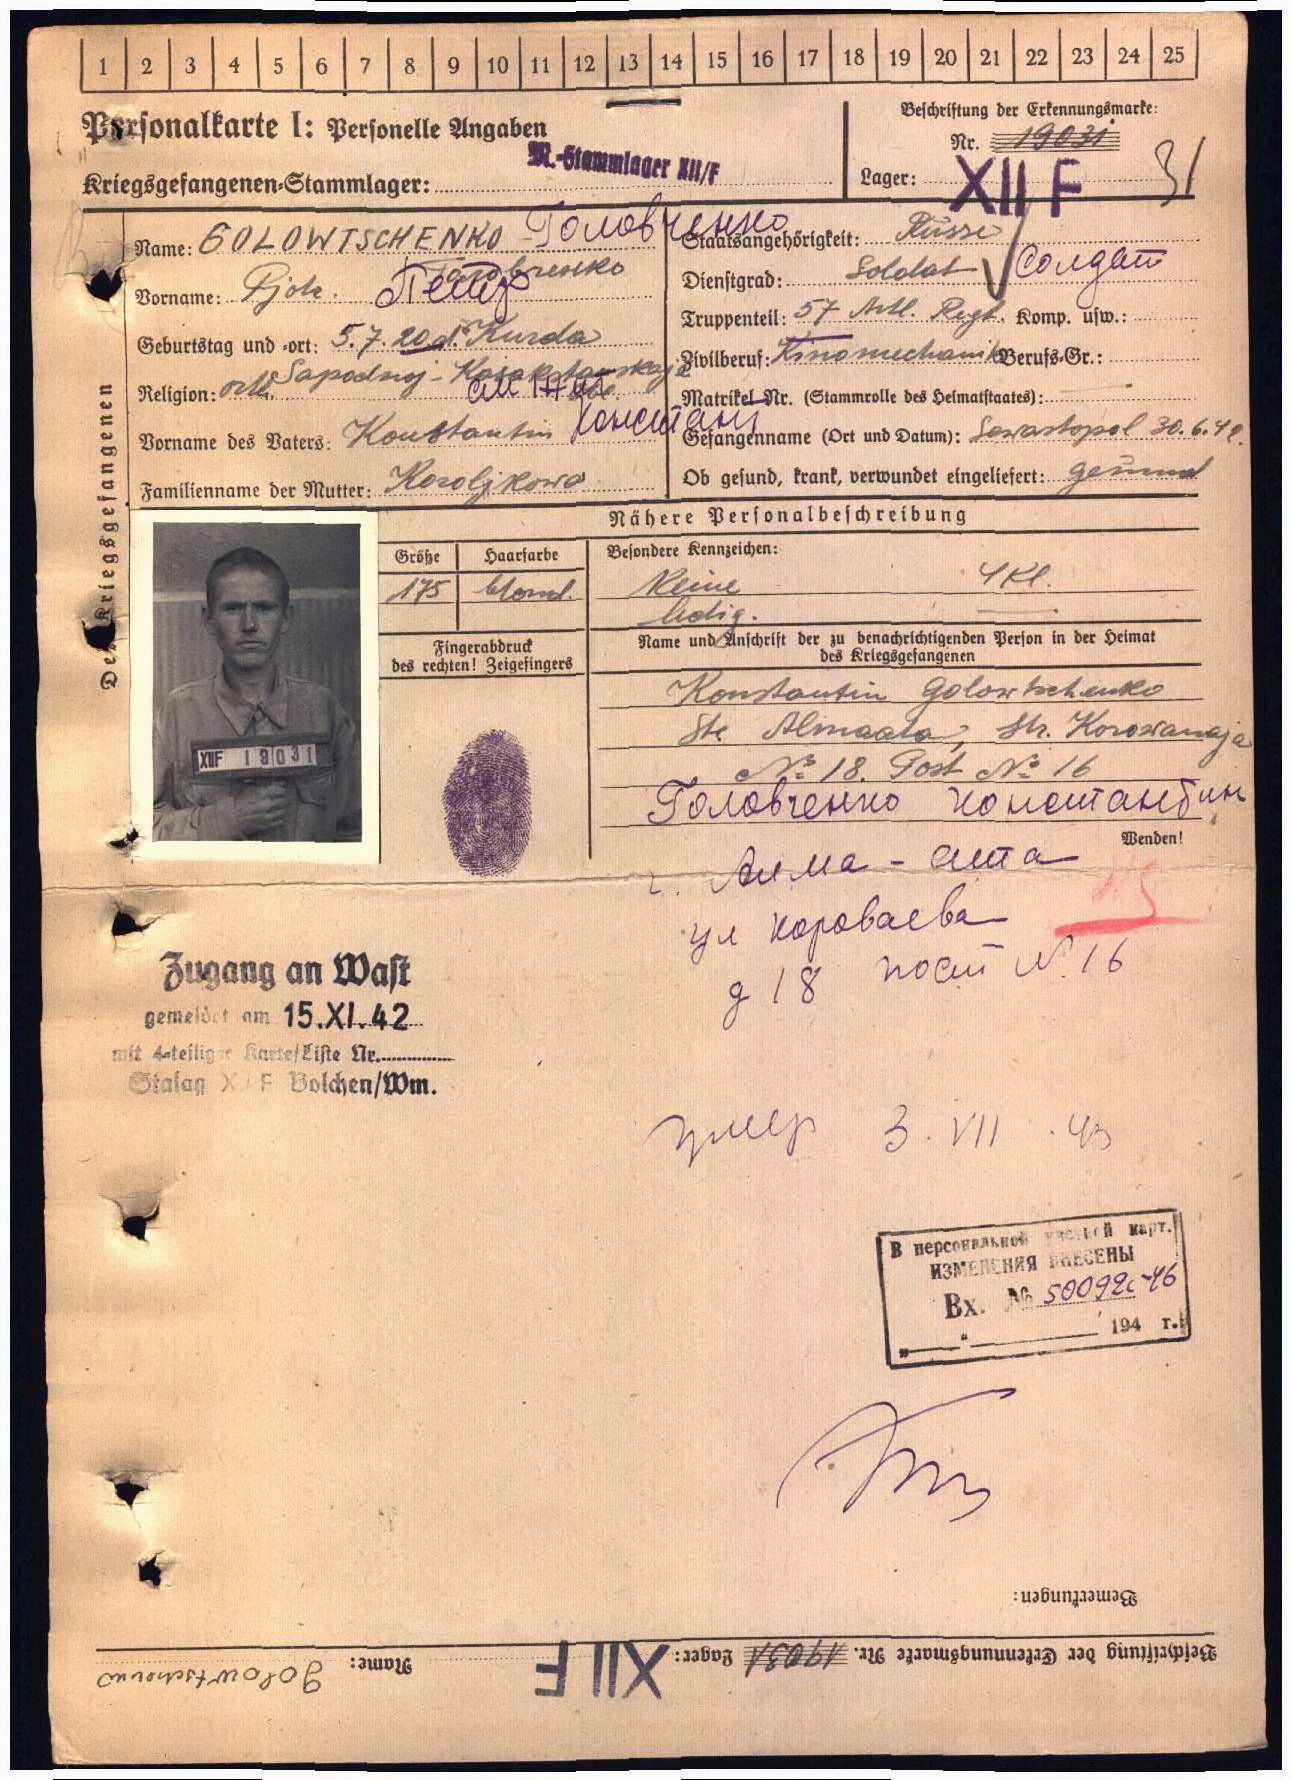 1 2 3 4 5 6 7 8 9 10 11 12 13 14 15 16 17 18 19 20 21 22 23 24 25
Personalkarte I: Personelle Angaben
Beschriftung der Erkennungsmarke:
Nr. 19031
M.-Stammlager XII/F
Kriegsgefangenen-Stammlager:
Lager: XII F 31
Des Kriegsgefangenen
Name: GOLOWTSCHENKO - Головченко
Staatsangehörigkeit: Russe
Головченко
Vorname: Pjotr. Петр
Dienstgrad: Soldat Солдат
Geburtstag und -ort: 5.7.20 Kurda
Truppenteil: 57 Artl. Regt. Komp. usw.:
Sapadnoj - Kasakstanskaja
Religion: orth. obl.
Zivilberuf: Kinomechanik Berufs-Gr.:
Matrikel Nr. (Stammrolle des Heimatstaates):
Vorname des Vaters: Konstantin Констант
Gefangenname (Ort und Datum): Sewastopol 30.6.42.
Familienname der Mutter: Koroljkowa
Ob gesund, krank, verwundet eingeliefert: gesund
Nähere Personalbeschreibung
Größe Haarfarbe
Besondere Kennzeichen:
175 blond.
Keine 4 Kl.
ledig.
Fingerabdruck
des rechten! Zeigefingers
Name und Anschrift der zu benachrichtigenden Person in der Heimat
des Kriegsgefangenen
Konstantin Golowtschenko
St. Almaata, Str. Korowanaja
№ 18. Post № 16
XIIF 19031
Головченко Константин
Wenden!
г. Алма-ата
ул Короваева
д 18 пост N. 16
Zugang an Wast
gemeldet am 15.XI.42
mit 4-teiliger Karte/Liste Nr.
Stalag XII F Bolchen/Wm.
умер 3. VII. 43
В персональной учетной карт.
ИЗМЕНЕНИЯ ВНЕСЕНЫ
Вх. № 50092с-46
„ “ 194 г.
Bemerkungen:
Beschriftung der Erkennungsmarke Nr. 19031 Lager: XII F Name: